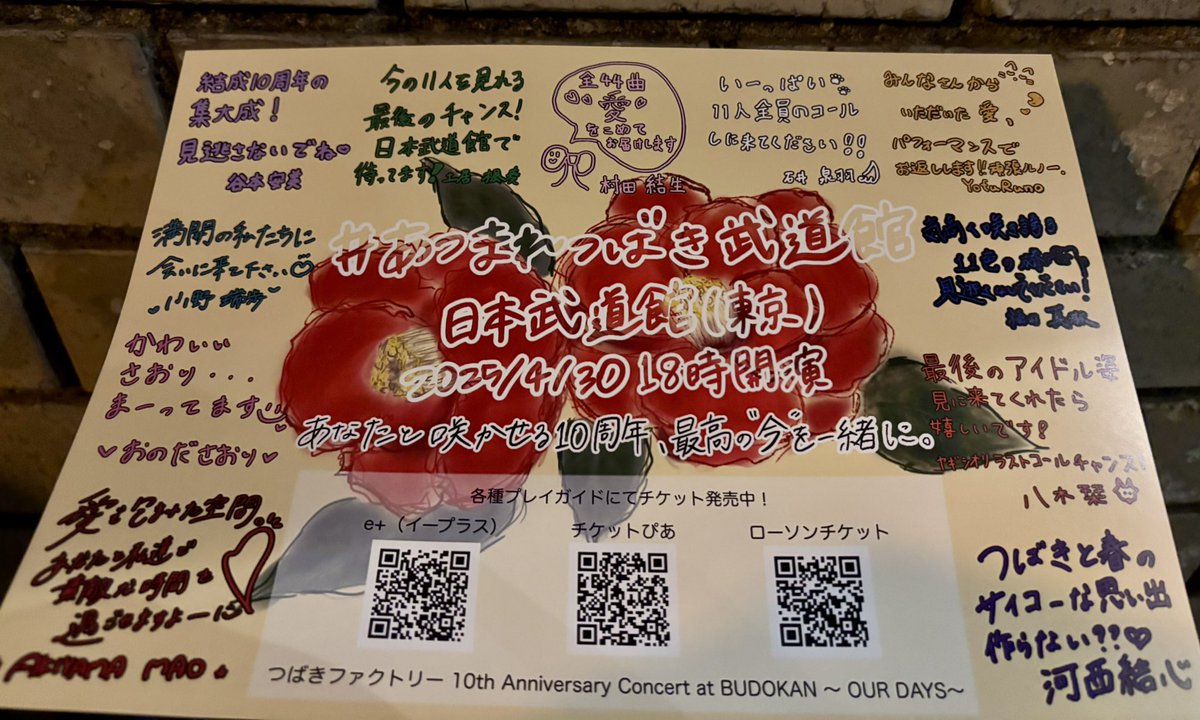 結成10周年の
集大成!
見逃さないでね♡
谷本安美
今の11人を見れる
最後のチャンス!
日本武道館で
待ってます
全44曲
愛
をこめて
お届けします
村田結生
いーっぱい
11人全員のコール
しに来てください!!
石井 泉羽
みんなさんから
いただいた愛、
パフォーマンスで
お返しします!!頑張ルノー、
YofuRuno
満開の私たちに
会いに来て下さい♡
小野 瑞歩
気高く咲き誇る
11色の
見逃さないでください!
#あつまれつばき武道館
日本武道館(東京)
2025/4/30 18時開演
あなたと咲かせる10周年、最高の"今"を一緒に。
かわいい
さおり・・・
まーってます
♡おのださおり♡
最後のアイドル姿
見に来てくれたら
嬉しいです?
ヤギシオリラストコールチャンス!
八木栞
愛に包まれた空間。
あなたと私達が
素敵な時間を
過ごせますよーに
AKIYAMA MAO
各種プレイガイドにてチケット発売中!
e+(イープラス)
チケットぴあ
ローソンチケット
つばきと春の
サイコーな思い出
作らない??♡
河西結心
つばきファクトリー 10th Anniversary Concert at BUDOKAN ~ OUR DAYS~